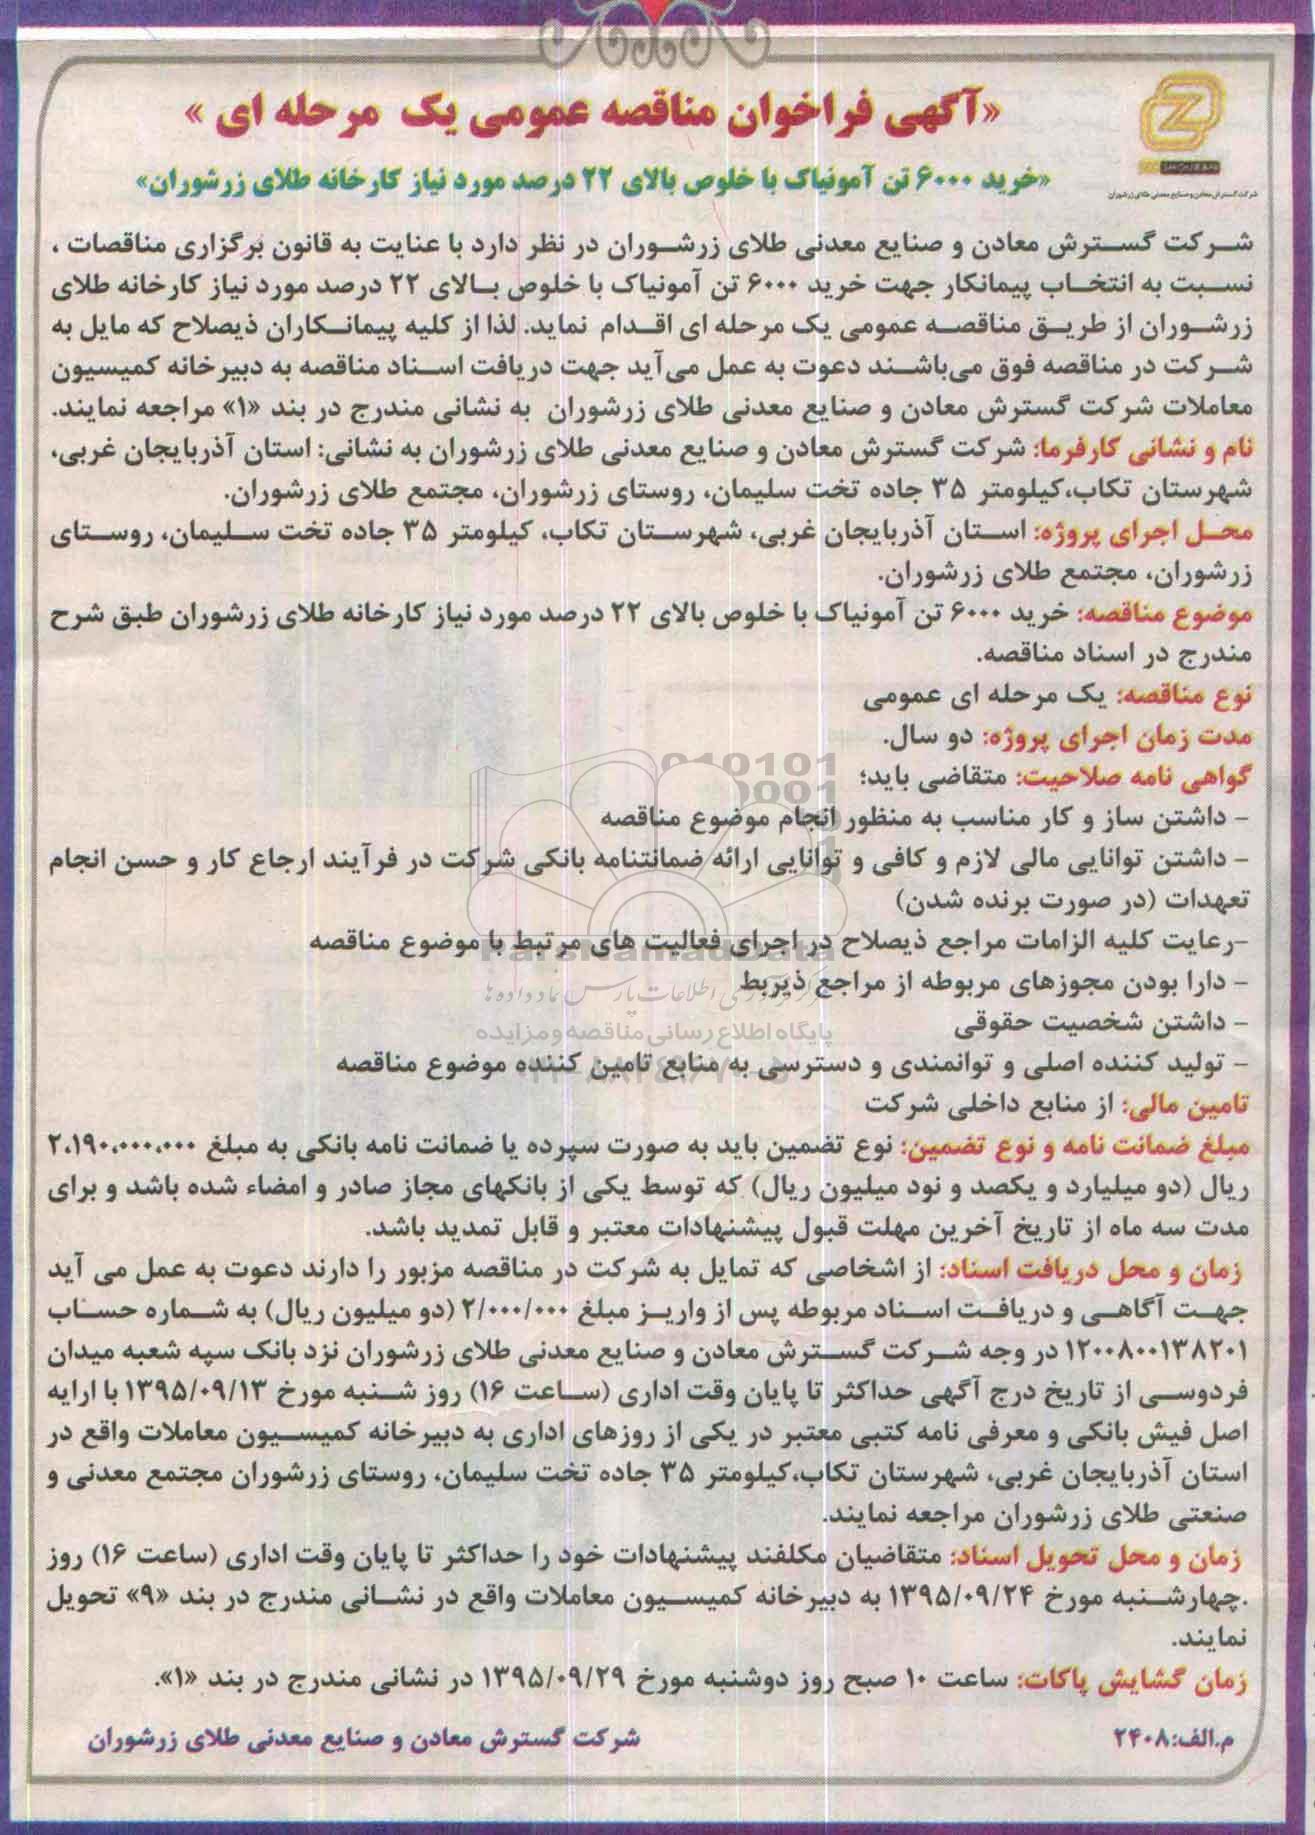 «آگهی فراخوان مناقصه عمومی یک مرحله ای »
«خرید ۶۰۰۰ تن آمونیاک با خلوص بالای ۲۲ درصد مورد نیاز کارخانه طلای زرشوران»
شرکت گسترش معادن و صنایع معدنی طلای زرشوران
شرکت گسترش معادن و صنایع معدنی طلای زرشوران در نظر دارد با عنایت به قانون برگزاری مناقصات ،
نسبت به انتخاب پیمانکار جهت خرید ۶۰۰۰ تن آمونیاک با خلوص بالای ۲۲ درصد مورد نیاز کارخانه طلای
زرشوران از طریق مناقصه عمومی یک مرحله ای اقدام نماید. لذا از کلیه پیمانکاران ذیصلاح که مایل به
شرکت در مناقصه فوق می‌باشند دعوت به عمل می‌آید جهت دریافت اسناد مناقصه به دبیرخانه کمیسیون
معاملات شرکت گسترش معادن و صنایع معدنی طلای زرشوران به نشانی مندرج در بند «۱» مراجعه نمایند.
نام و نشانی کارفرما: شرکت گسترش معادن و صنایع معدنی طلای زرشوران به نشانی: استان آذربایجان غربی،
شهرستان تکاب،کیلومتر ۳۵ جاده تخت سلیمان، روستای زرشوران، مجتمع طلای زرشوران.
محل اجرای پروژه: استان آذربایجان غربی، شهرستان تکاب، کیلومتر ۳۵ جاده تخت سلیمان، روستای
زرشوران، مجتمع طلای زرشوران.
موضوع مناقصه: خرید ۶۰۰۰ تن آمونیاک با خلوص بالای ۲۲ درصد مورد نیاز کارخانه طلای زرشوران طبق شرح
مندرج در اسناد مناقصه.
نوع مناقصه: یک مرحله ای عمومی
مدت زمان اجرای پروژه: دو سال.
گواهی نامه صلاحیت: متقاضی باید؛
- داشتن ساز و کار مناسب به منظور انجام موضوع مناقصه
- داشتن توانایی مالی لازم و کافی و توانایی ارائه ضمانتنامه بانکی شرکت در فرآیند ارجاع کار و حسن انجام
تعهدات (در صورت برنده شدن)
-رعایت کلیه الزامات مراجع ذیصلاح در اجرای فعالیت های مرتبط با موضوع مناقصه
- دارا بودن مجوزهای مربوطه از مراجع ذیربط
- داشتن شخصیت حقوقی
- تولید کننده اصلی و توانمندی و دسترسی به منابع تامین کننده موضوع مناقصه
تامین مالی: از منابع داخلی شرکت
مبلغ ضمانت نامه و نوع تضمین: نوع تضمین باید به صورت سپرده یا ضمانت نامه بانکی به مبلغ ۲،۱۹۰،۰۰۰،۰۰۰
ریال (دو میلیارد و یکصد و نود میلیون ریال) که توسط یکی از بانکهای مجاز صادر و امضاء شده باشد و برای
مدت سه ماه از تاریخ آخرین مهلت قبول پیشنهادات معتبر و قابل تمدید باشد.
زمان و محل دریافت اسناد: از اشخاصی که تمایل به شرکت در مناقصه مزبور را دارند دعوت به عمل می آید
جهت آگاهی و دریافت اسناد مربوطه پس از واریز مبلغ ۲/۰۰۰/۰۰۰ (دو میلیون ریال) به شماره حساب
۱۲۰۰۸۰۰۱۳۸۲۰۱ در وجه شرکت گسترش معادن و صنایع معدنی طلای زرشوران نزد بانک سپه شعبه میدان
فردوسی از تاریخ درج آگهی حداکثر تا پایان وقت اداری (ساعت ۱۶) روز شنبه مورخ ۱۳۹۵/۰۹/۱۳ با ارایه
اصل فیش بانکی و معرفی نامه کتبی معتبر در یکی از روزهای اداری به دبیرخانه کمیسیون معاملات واقع در
استان آذربایجان غربی، شهرستان تکاب،کیلومتر ۳۵ جاده تخت سلیمان، روستای زرشوران مجتمع معدنی و
صنعتی طلای زرشوران مراجعه نمایند.
زمان و محل تحویل اسناد: متقاضیان مکلفند پیشنهادات خود را حداکثر تا پایان وقت اداری (ساعت ۱۶) روز
.چهارشنبه مورخ ۱۳۹۵/۰۹/۲۴ به دبیرخانه کمیسیون معاملات واقع در نشانی مندرج در بند «۹» تحویل
نمایند.
زمان گشایش پاکات: ساعت ۱۰ صبح روز دوشنبه مورخ ۱۳۹۵/۰۹/۲۹ در نشانی مندرج در بند «۱».
م.الف:۲۴۰۸
شرکت گسترش معادن و صنایع معدنی طلای زرشوران
ParsNamadData
پایگاه اطلاع رسانی مناقصه و مزایده